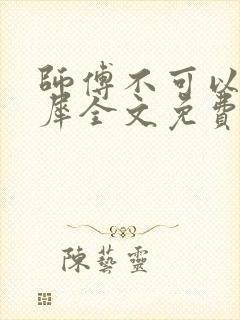 師傅不可以
犀全文免費
陳藝靈